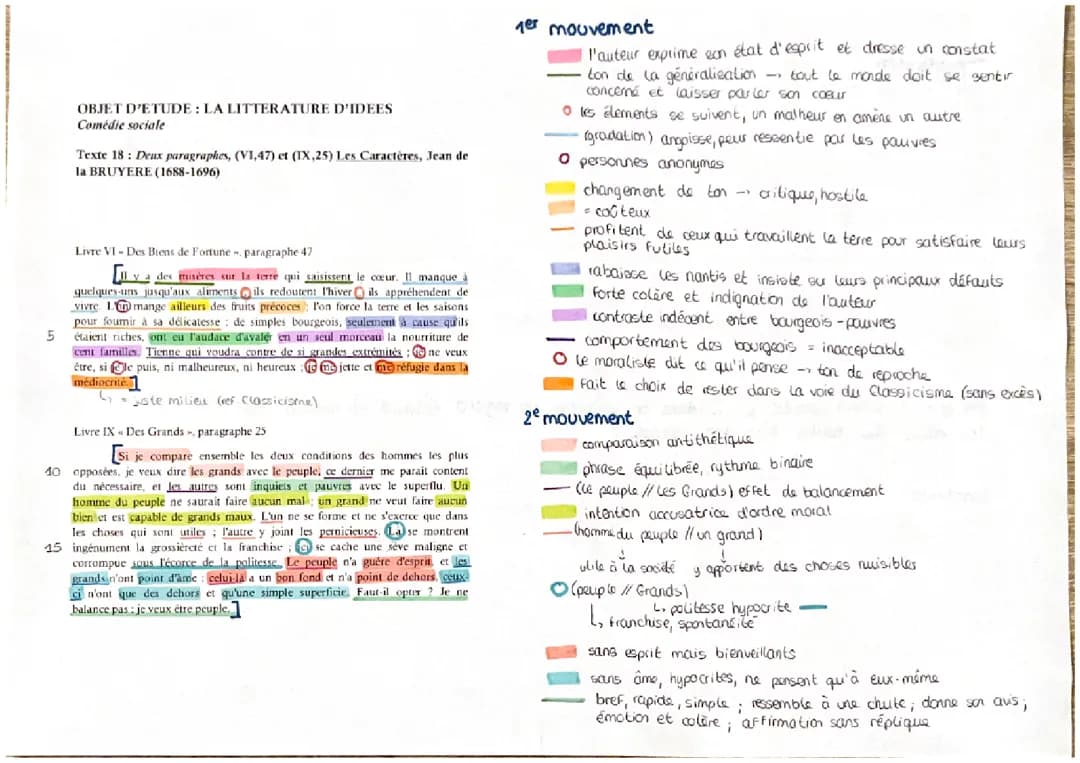 OBJET D'ETUDE : LA LITTERATURE D'IDEES
Comédie sociale
Texte 18 : Deux paragraphes, (VI,47) et (IX,25) Les Caractères, Jean de
la BRUYERE (1688-1696)
Livre VI « Des Biens de Fortune », paragraphe 47
[Il y a des misères sur la terre qui saisissent le cœur. Il manque à
quelques-uns jusqu'aux aliments ; ils redoutent l'hiver ; ils appréhendent de
vivre. L'on mange ailleurs des fruits précoces ; l'on force la terre et les saisons
pour fournir à sa délicatesse ; de simples bourgeois, seulement à cause qu'ils
5 étaient riches, ont eu l'audace d'avaler en un seul morceau la nourriture de
cent familles. Tienne qui voudra contre de si grandes extrémités ; je ne veux
être, si je le puis, ni malheureux, ni heureux ; je me jette et me réfugie dans la
médiocrité.]
↳ = juste milieu (ref Classicisme)
Livre IX « Des Grands », paragraphe 25
[Si je compare ensemble les deux conditions des hommes les plus
10 opposées, je veux dire les grands avec le peuple, ce dernier me paraît content
du nécessaire, et les autres sont inquiets et pauvres avec le superflu. Un
homme du peuple ne saurait faire aucun mal ; un grand ne veut faire aucun
bien et est capable de grands maux. L'un ne se forme et ne s'exerce que dans
les choses qui sont utiles ; l'autre y joint les pernicieuses. Là se montrent
15 ingénument la grossièreté et la franchise ; ici se cache une sève maligne et
corrompue sous l'écorce de la politesse. Le peuple n'a guère d'esprit, et les
grands n'ont point d'âme : celui-là a un bon fond et n'a point de dehors, ceux-
ci n'ont que des dehors et qu'une simple superficie. Faut-il opter ? Je ne
balance pas : je veux être peuple.]
1er mouvement
l'auteur exprime son état d'esprit et dresse un constat
ton de la généralisation → tout le monde doit se sentir
concerné et laisser parler son cœur
les élements se suivent, un malheur en amène un autre
(gradation) angoisse, peur ressentie par les pauvres
personnes anonymes
changement de ton → critique, hostile
= coûteux
profitent de ceux qui travaillent la terre pour satisfaire leurs
plaisirs futiles
rabaisse les nantis et insiste sur leurs principaux défauts
forte colère et indignation de l'auteur
contraste indécent entre bourgeois - pauvres
comportement des bourgeois = inacceptable
le moraliste dit ce qu'il pense → ton de reproche
fait le choix de rester dans la voie du Classicisme (sans excès)
2e mouvement
comparaison antithétique
phrase équilibrée, rythme binaire
(le peuple // Les Grands) effet de balancement
intention accusatrice d'ordre moral
(homme du peuple // un grand)
↓ ↓
utile à la société y apportent des choses nuisibles
(peuple // Grands)
↳ politesse hypocrite
↳ franchise, spontanéité
sans esprit mais bienveillants
sans âme, hypocrites, ne pensent qu'à eux-même
bref, rapide, simple ; ressemble à une chute ; donne son avis ;
émotion et colère ; affirmation sans réplique